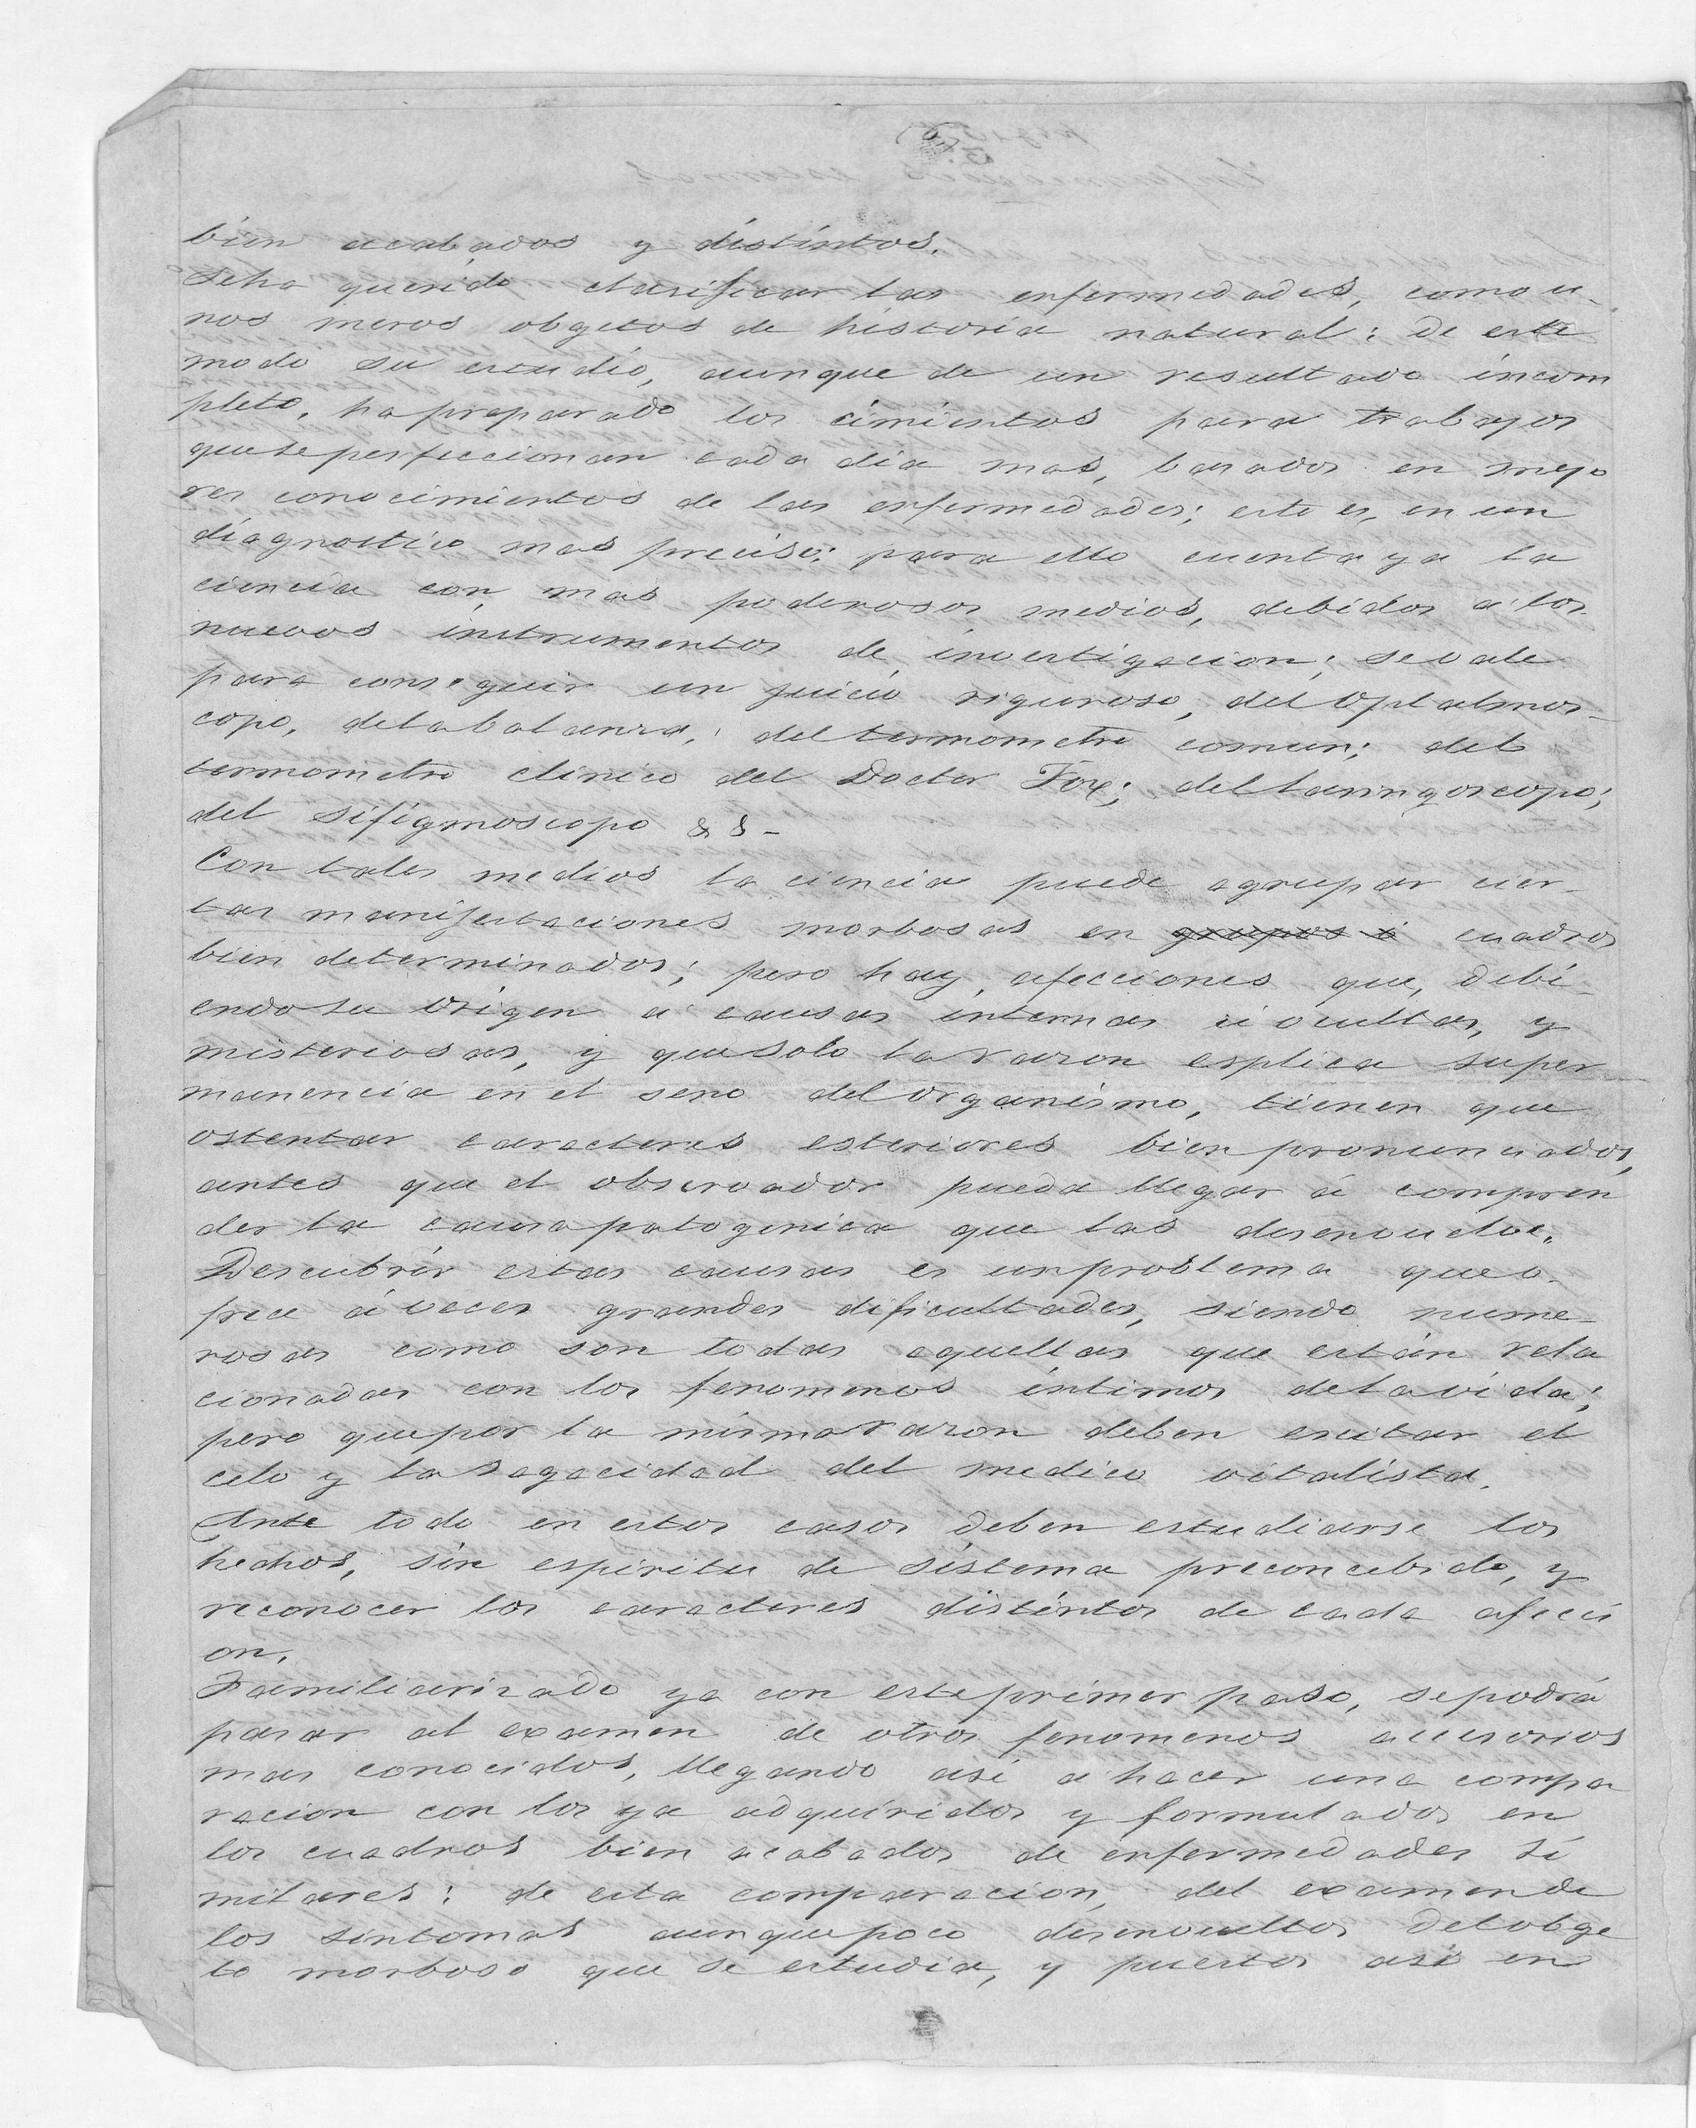 bien acabados y distintos.
Seha querido clasificar las enfermedades, como u-
nos meros obgetos de historia natural: de este
modo su estudio, aunque de un resultado incom
pleto, ha preparado los cimientos para trabajos
quese perfeccionan cada dia mas, basados en mejo
res conocimientos de las enfermedades; esto es, en un
diagnostico mas preciso: para ello cuenta ya la
ciencia con mas poderosos medios, debidos a los
nuevos instrumentos de investigacion; sevale
para conseguir un juicio riguroso, del Optalmos-
copo, delabalanza; del termometro comun; del
termometro clinico del Doctor Fox; del laringoscopo;
del sifigmoscopo & & -
Con tales medios la ciencia puede agrupar cier-
tas manifestaciones morbosas en grupos ó cuadros
bien determinados; pero hay afecciones que, debi-
endo su origen a causas internas ú ocultas, y
misteriosas, y que solo la razon esplica super-
manencia en el seno del organismo, tienen que
ostentar caracteres esteriores bien pronunciados,
antes que el observador pueda llegar á compren
der la causa patogenica que las desenvuelve.
Descubrir estas causas es un problema que o-
frece á veces grandes dificultades, siendo nume-
rosas como son todas aquellas que están rela
cionadas con los fenomenos intimos delavida;
pero que por la misma razon deben escitar el
celo y la sagacidad del medico vitalista.
Ante todo en estos casos deben estudiarse los
hechos, sin espiritu de sistema preconcebido, y
reconocer los caracteres distintos de cada afecci
on.
Familiarizado ya con este primer paso, sepodrá
pasar al examen de otros fenomenos accesorios
mas conocidos, llegando asi a hacer una compa
racion con los ya adquiridos y formulados en
los cuadros bien acabados de enfermedades si
milares: de esta comparacion, del examen de
los sintomas aunque poco desenvueltos del obge
to morboso que se estudia, y puestos asi en